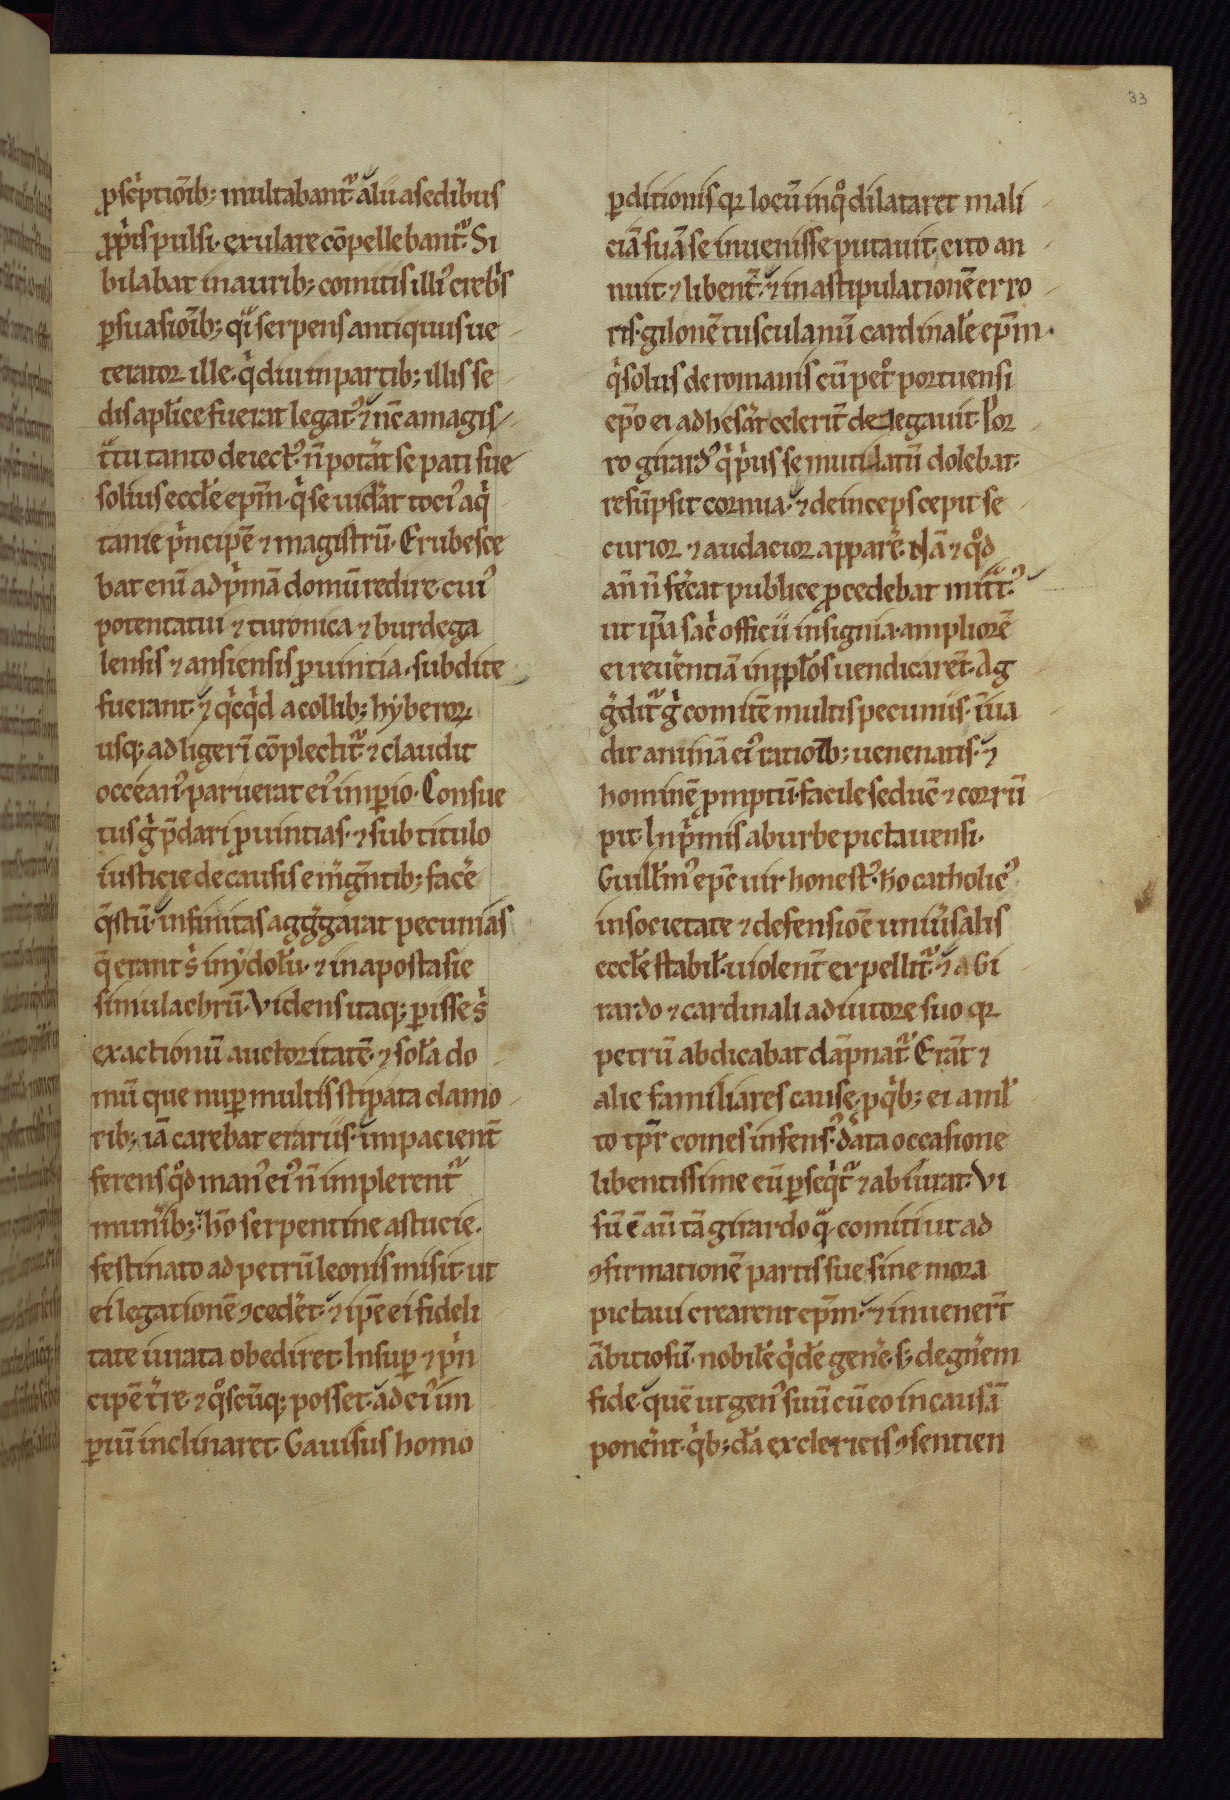 33
ꝓsc̾ptiōib; multabantᷣ alii a sedibus
ꝓpͥis pulsi. exulare cōpellebantᷣ. Si
bilabat in aurib; comitis illiꝰ creb̾s
ꝑsuasiōib; qͥ serpens antiquus ue
terator ille. qͥ diu in partib; illis se
dis apl̄ice fuerat legatꝰ. ⁊ nc̄ a magis
tͣtu tanto deiectꝰ. n̄ potāt se pati sue
solius eccl̄e ep̄m. qͥ se uid̾at tociꝰ aqͥ
tanie pͥncipē ⁊ magistrū. Erubesce
bat enī ad pͥmā domū redire. cuiꝰ
potentatui ⁊ turonica ⁊ burdega
lensis ⁊ ausiensis ꝓuintia. subdite
fuerant. ⁊ qͥcqͥd a collib; hyberoꝝ
usq; ad ligerī cōplectitᷣ ⁊ claudit
occeanꝰ. paruerat eiꝰ imꝑio. Consue
tus gͥ p̄dari ꝓuintias. ⁊ sub titulo
iusticie de causis em̾gentib; facē
q̄stū. infinitas aggͤgarat pecunias
q̄ erant s̾ in ydolū. ⁊ in apostasie
simulachrū. Videns itaq; ꝑisse s̾
exactionū auctoritatē. ⁊ solā do
mū que nuꝑ multis stipata clamo
rib; iā carebat erariis. impacient̄
ferens qͦd manꝰ eiꝰ n̄ implerentᷣ
mun̾ib;. hō serpentine astucie.
festinato ad petrū leonis misit. ut
ei legationē ꝯcedet. ⁊ ip̄e ei fideli
tate iurata obediret. Insuꝑ ⁊ pͥn
cipē tr̄e. ⁊ qͦscūq; posset. ad eiꝰ im
ꝑiū inclinaret. Gauisus homo
ꝑditionis qꝛ locū in qͦ dilataret mali
ciā suā se inuenisse putauit. cito an
nuit. ⁊ libent̄. ⁊ in astipulationē erro
ris. gilonē tusculanū cardinalē ep̄m.
qͥ solus de romanis cū petͦ portuensi
ep̄o ei adhes̾at celerit̄ delegauit. Por
ro girardꝰ qͥ pͥus se mutilatū dolebat.
resūpsit cornua. ⁊ deinceps cepit se
curior ⁊ audacior apparē. Nā ⁊ qͦd
an̄ n̄ fec̾at publice ꝓcedebat mitͣtꝰ
ut ip̄a sac̾ officii insignia. ampliorē
ei reu̾entiā in pp̄l̄os uendicarēt. Ag
gͤditᷣ gͥ comitē multis pecuniis. īua
dit animā eiꝰ ratioīb; uenenatis. ⁊
hominē ꝓmptū. facile seduc̄ ⁊ corrū
pit. In pͥmis ab urbe pictauensi.
Guill̄mꝰ ep̄c uir honestꝰ. hō catholicꝰ
in societate ⁊ defensiōe uniu̾salis
eccl̄e stabil̄. uiolent̄ expellitᷣ. ⁊ a Gi
rardo ⁊ cardinali adiutore suo qꝛ
petrū abdicabat dāpnatᷣ. Erāt ⁊
alie familiares cause. ꝓ qͥb; ei a ml̄
to tp̄r comes infensꝰ. data occasione
libentissime eū ꝑseqͥtᷣ ⁊ abiurat. Vi
sū ē aū tā girardo qͣ comiti ut ad
ꝯfirmationē partis sue sine mora
pictaui crearent ep̄m. ⁊ inuenert̄
ābitiosū. nobilē qͥdē gene. s; degn̾em
fide. quē ut genꝰ suū cū eo in causā
pon̾ent. qͥb;dā ex clericis ꝯsentien